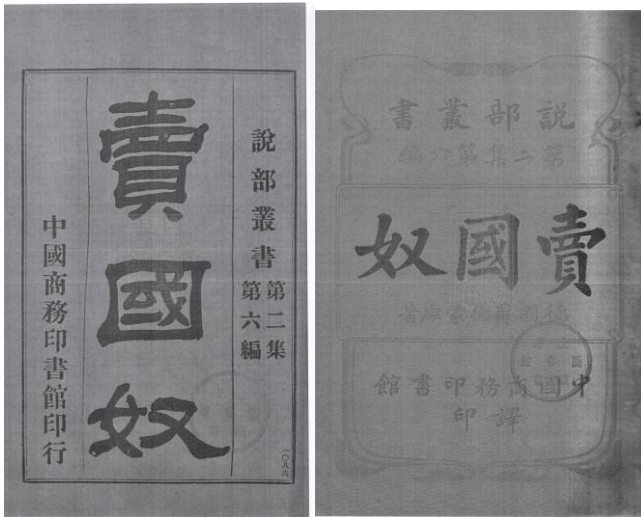 說部叢書
第二集
第六編
賣國奴
中國商務印書館印行
一〇八六
說部叢書
第二集第六編
賣國奴
德國蘇德蒙原著
中國商務印書館
譯印